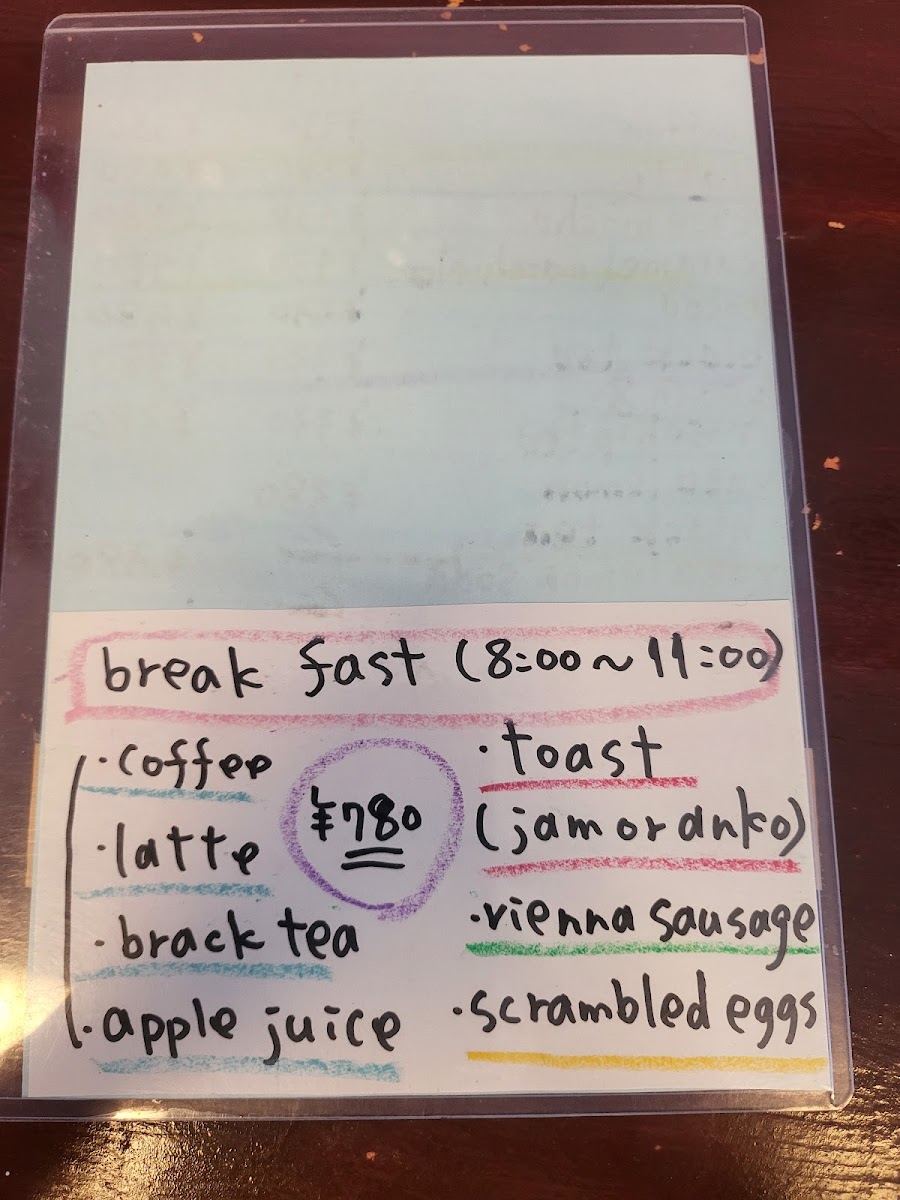 break fast (8:00~11:00)
・coffee
・latte
・brack tea
・apple juice
¥780
・toast
(jam or anko)
・vienna sausage
・scrambled eggs